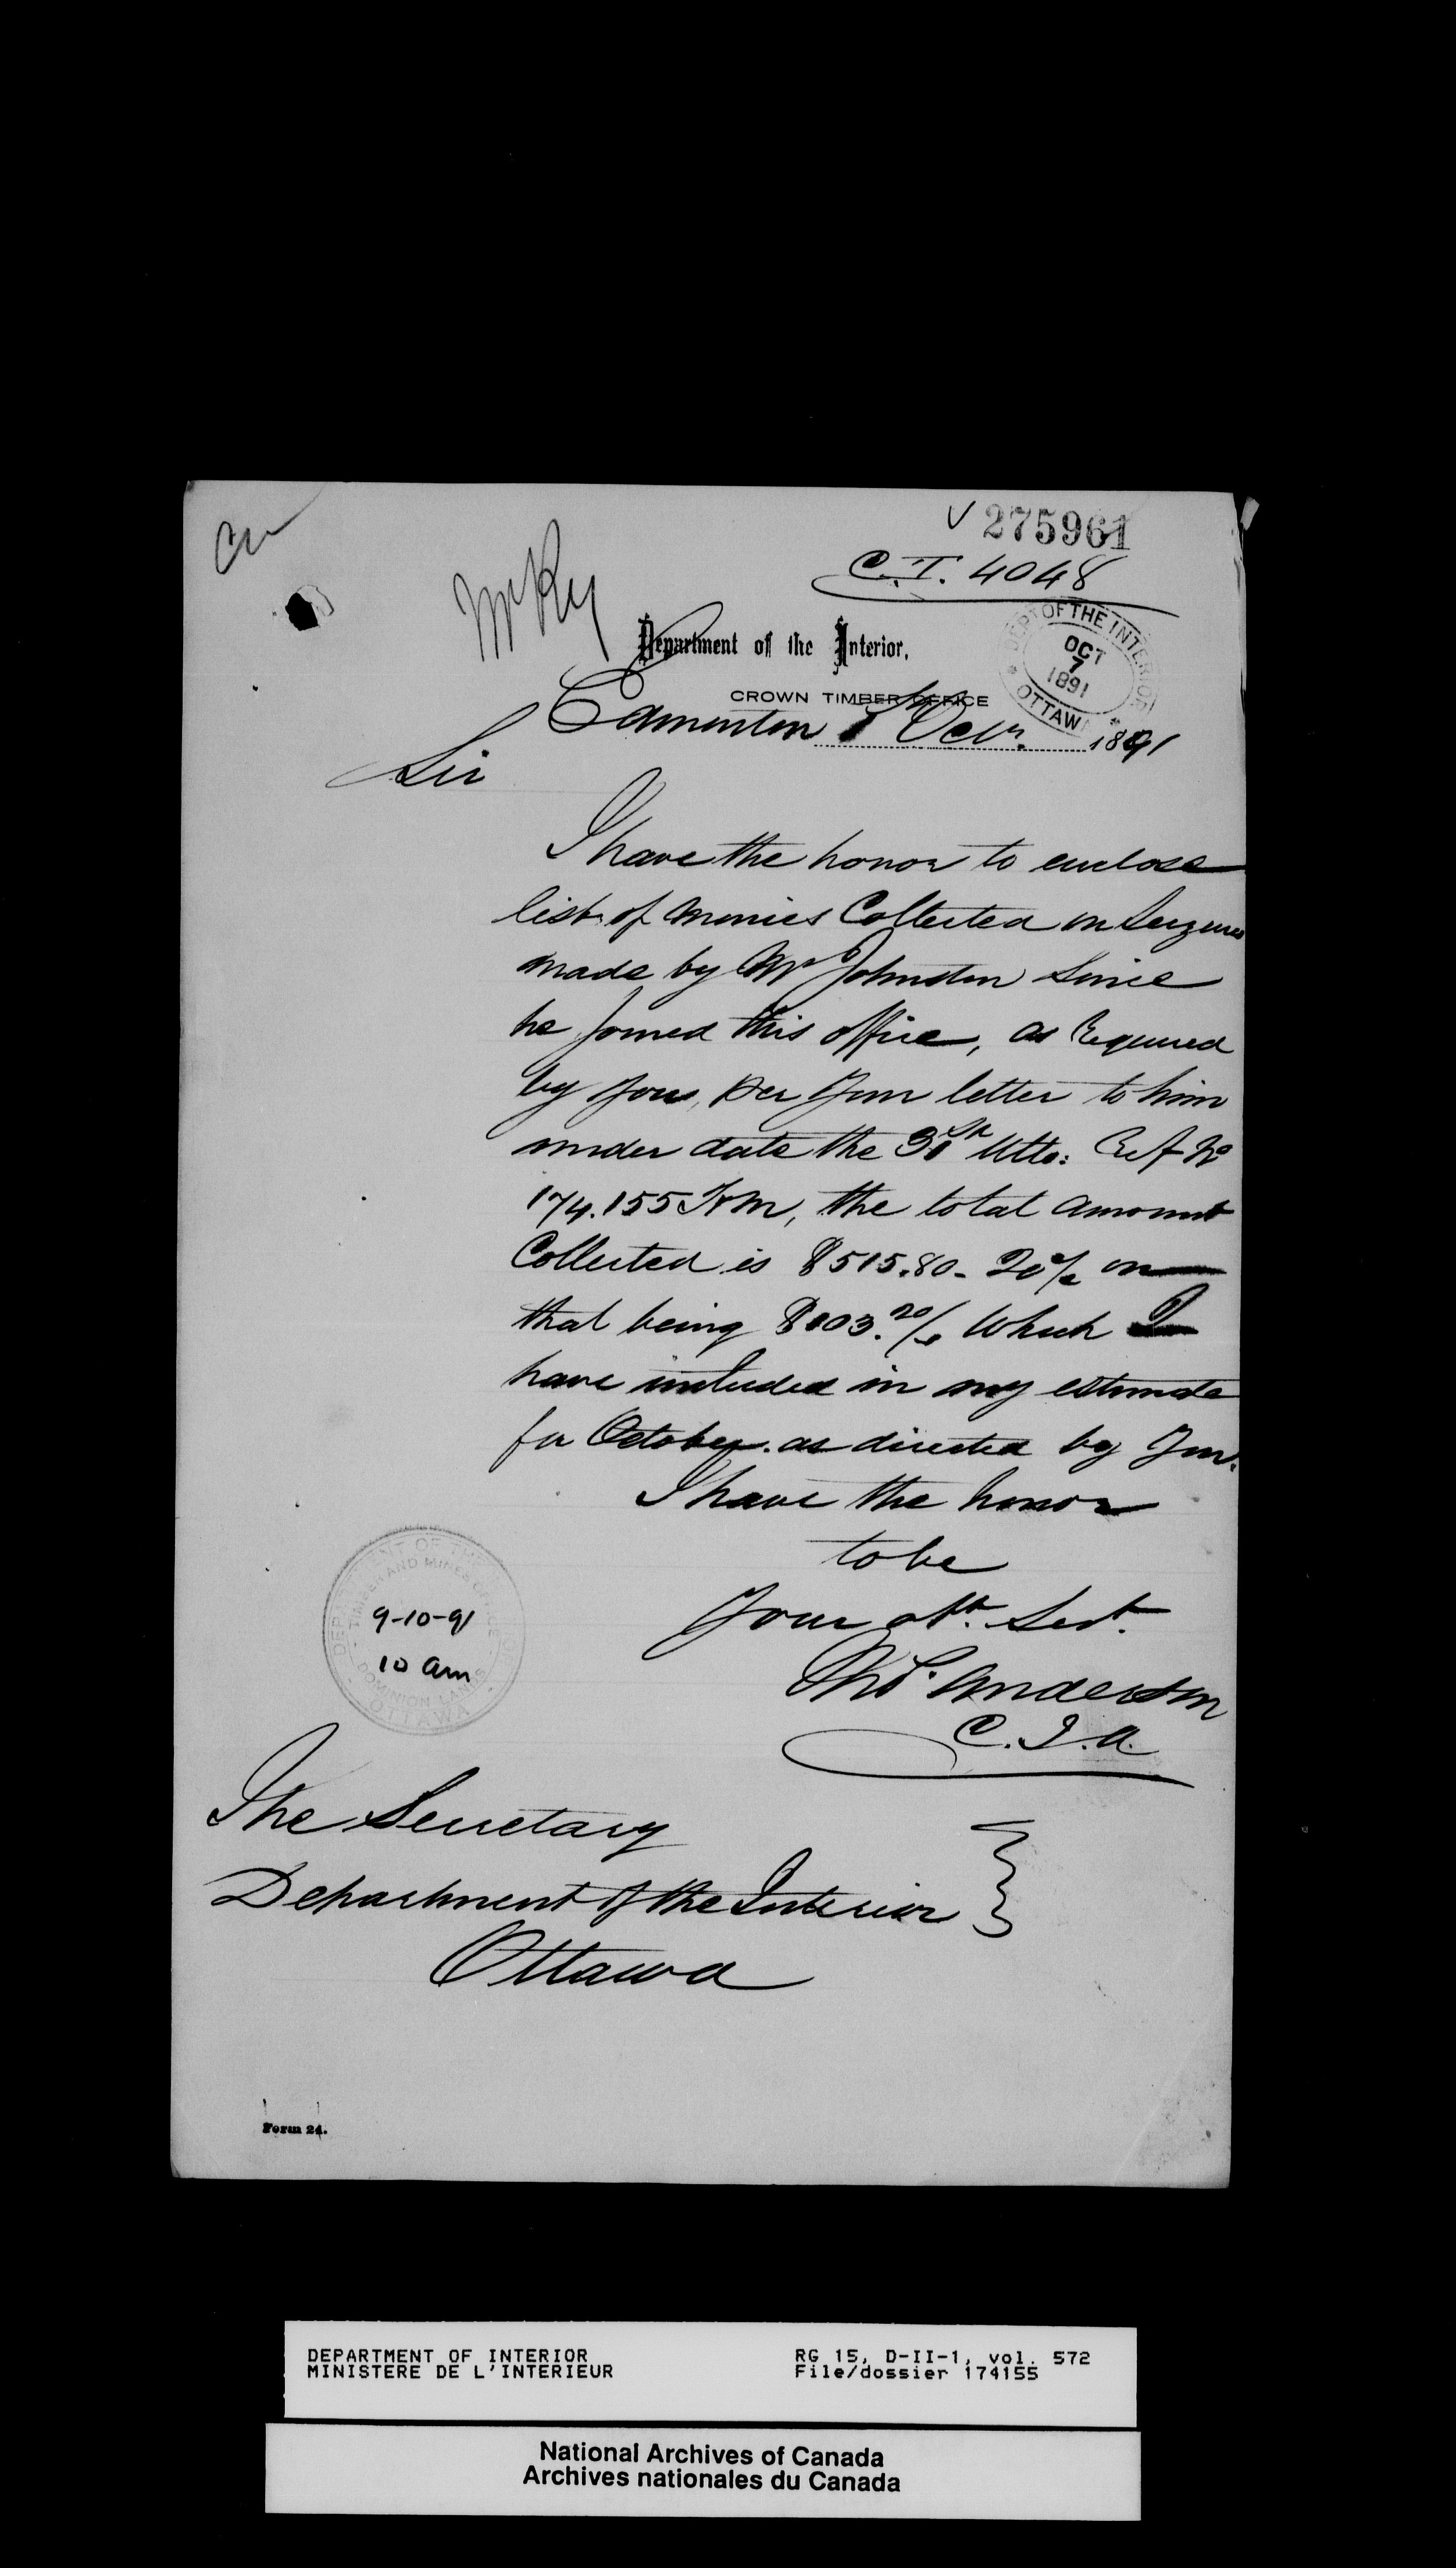 275961
C.T. 4048
Mr Ry
Department of the Interior,
CROWN TIMBER OFFICE
DEPT OF THE INTERIOR
OCT
7
1891
OTTAWA
Edmonton 1st Octr. 1891
Sir
I have the honor to enclose
list of monies Collected on Seizures
made by Mr Johnston Since
he joined this office, as required
by you, per your letter to him
under date the 30th Ulto: Ref No
174.155 T&M, the total amount
Collected is $515.80 - 20% on
that being $103.20/ Which I
have included in my estimate
for October. as directed by You.
I have the honor
to be
Your obt. Sevt.
Thos. Anderson
C.T.A.
DEPARTMENT OF THE INTERIOR
TIMBER AND MINES OFFICE
9-10-91
10 am
DOMINION LANDS
OTTAWA
The Secretary
Department of the Interior
Ottawa
Form 24.
DEPARTMENT OF INTERIOR
MINISTERE DE L'INTERIEUR
RG 15, D-II-1, vol. 572
File/dossier 174155
National Archives of Canada
Archives nationales du Canada